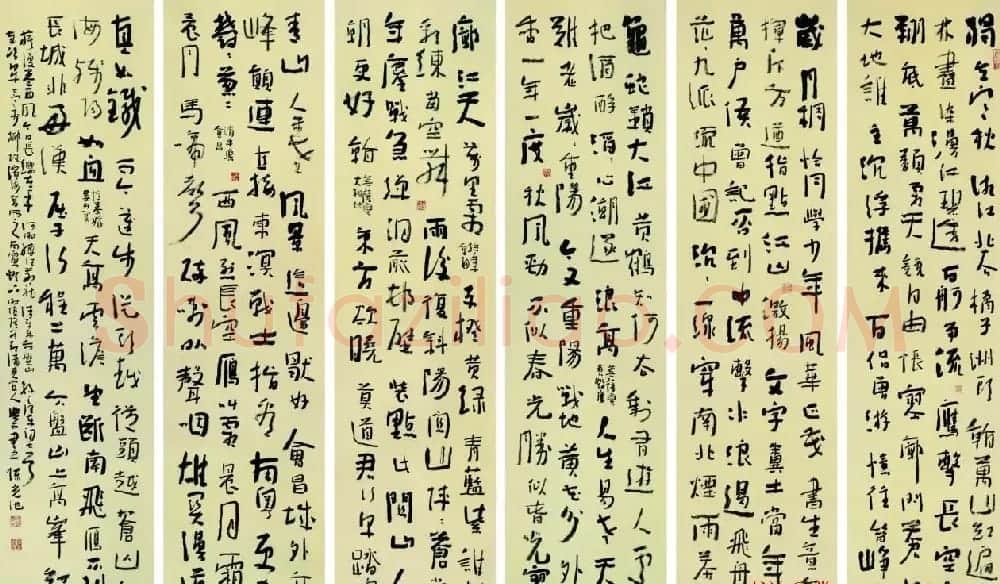 獨立寒秋湘江北去橘子洲頭看萬山紅遍
林盡染漫江碧透百舸爭流鷹擊長空
翔底萬類霜天競自由悵寥廓問蒼
大地誰主沉浮攜來百侶曾遊憶往昔崢
歲月稠恰同學少年風華正茂書生意
揮斥方遒指點江山激揚文字糞土當年
萬戶侯曾記否到中流擊水浪遏飛舟
茫九派流中國沉沉一線穿南北煙雨莽
龜蛇鎖大江黃鶴知何去剩有遊人處
把酒酹滔滔心潮逐浪高人生易老天
難老歲歲重陽今又重陽戰地黃花分外
香一年一度秋風勁不似春光勝似春光寥
廓江天萬里霜赤橙黃綠青藍紫誰
彩練當空舞雨後復斜陽關山陣陣蒼
年鏖戰急彈洞前村壁裝點此關山
朝更好看東方欲曉莫道君行早踏
青山人未老風景這邊獨好會昌城外
峰顛連直接東溟戰士指看南粵更
鬱蔥蔥西風烈長空雁叫霜晨月霜
晨月馬蹄聲碎喇叭聲咽雄關漫道
真如鐵而今邁步從頭越從頭越蒼山
海殘陽如血天高雲淡望斷南飛雁不到
長城非好漢屈指行程二萬六盤山上高峰紅
Shufaziliao.COM